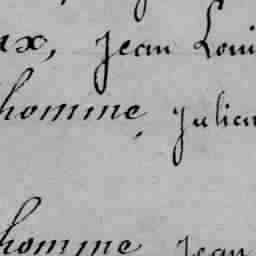 ax, Jean Loui
homme, Julien
homme Jean